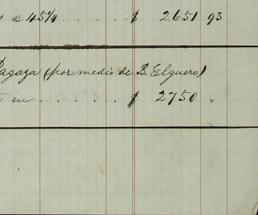 a 45¼ . . . . . . $ 2651 93
Pagaza (por medio de B. Elguero)
en . . . . . $ 2750 "